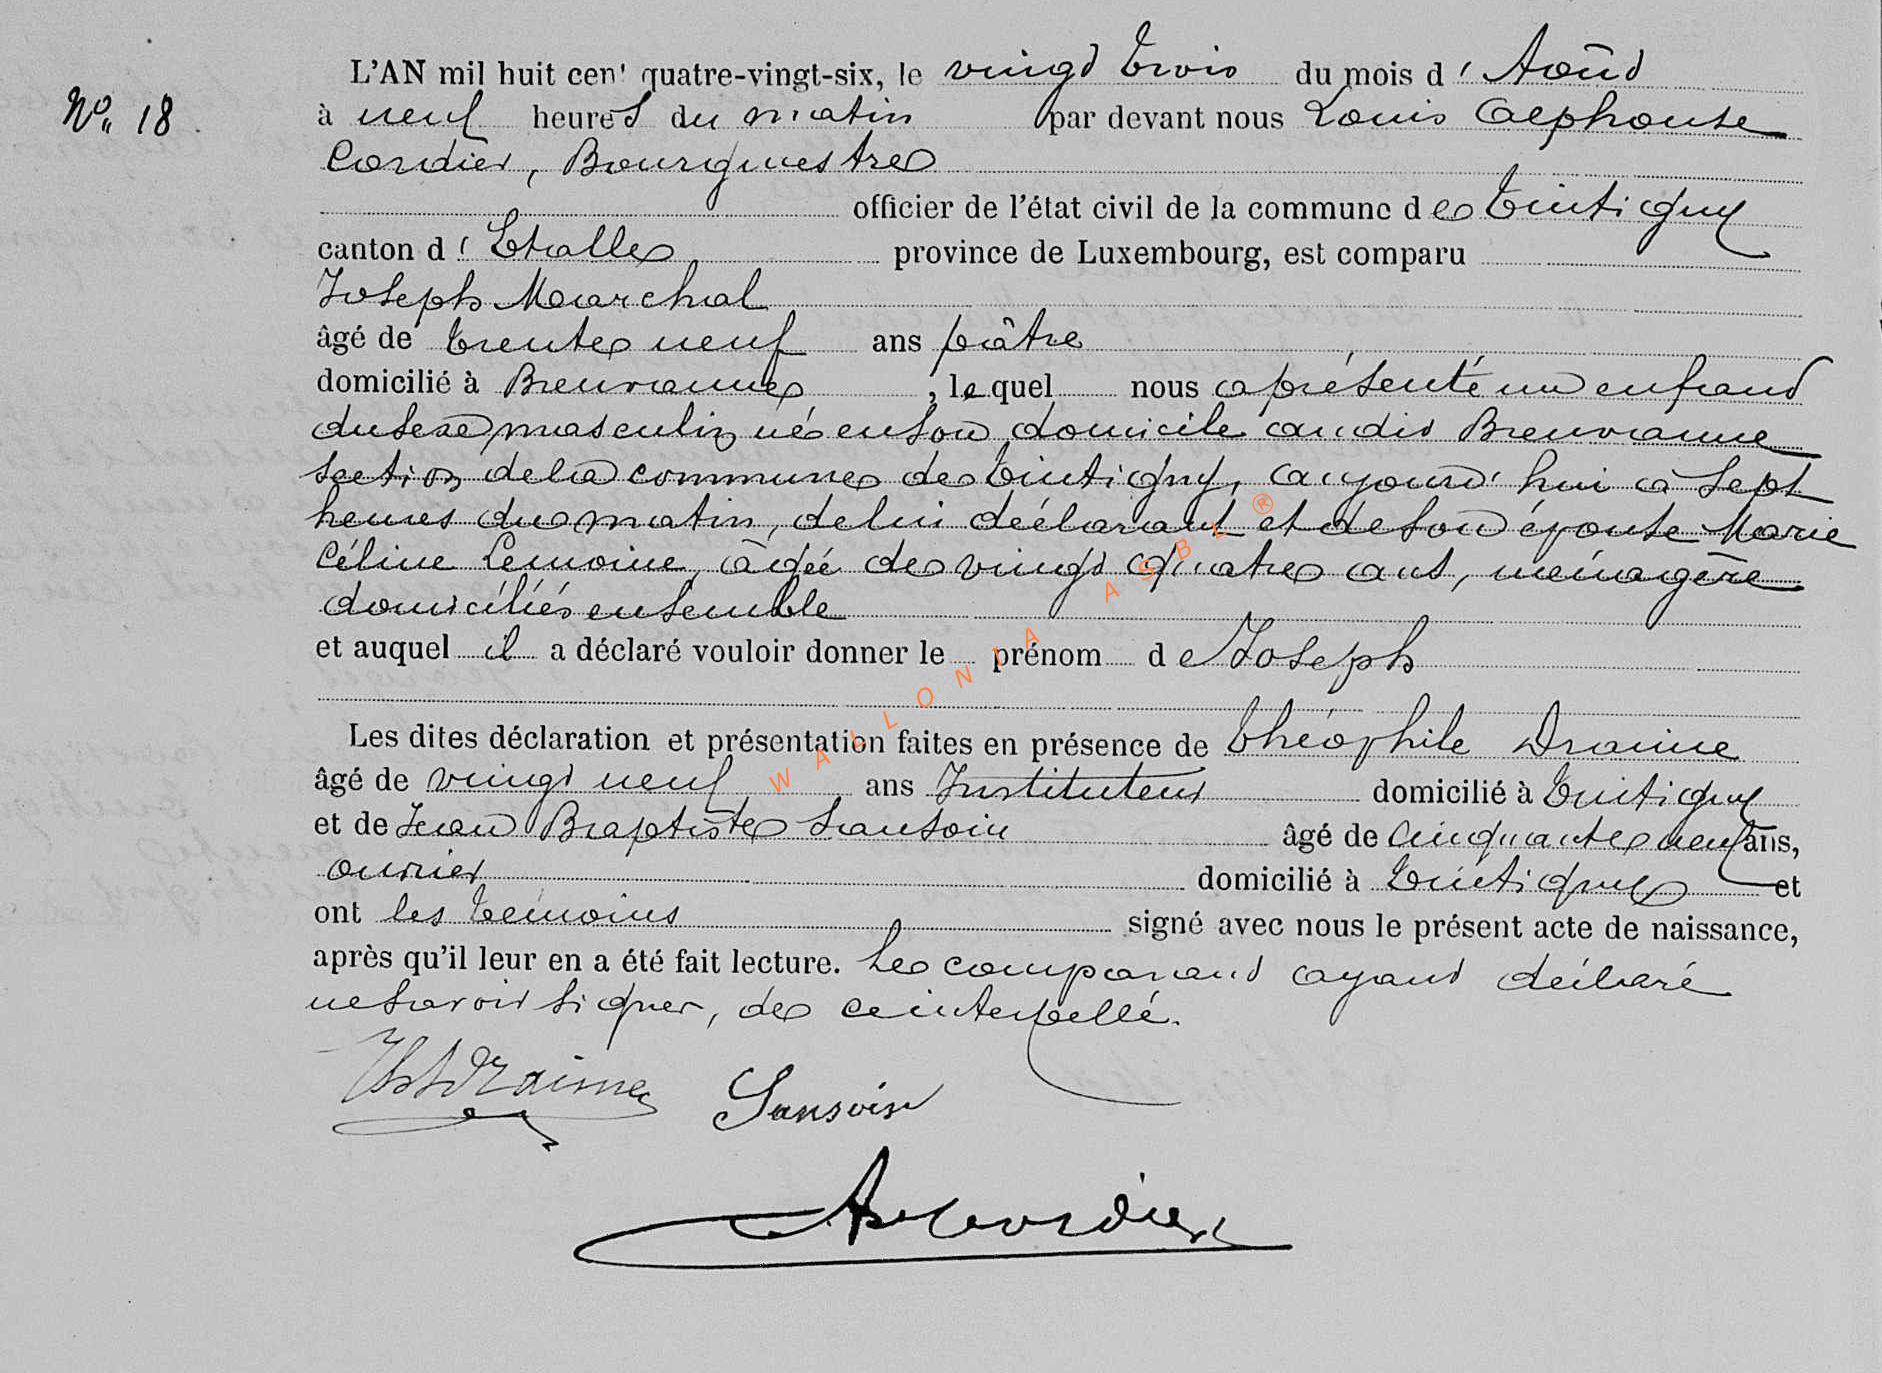 N° 18
L'AN mil huit cent quatre-vingt-six, le vingt trois du mois d'Août
à neuf heures du matin par devant nous Louis Alphonse
Cordier, Bourgmestre
officier de l'état civil de la commune de Tintigny
canton d'Etalle province de Luxembourg, est comparu
Joseph Marchal
âgé de trente neuf ans pâtre
domicilié à Breuvanne, lequel nous a présenté un enfant
du sexe masculin né en son domicile audit Breuvanne
section de la commune de Tintigny, aujourd'hui à sept
heures du matin, de lui déclarant et de son épouse Marie
Céline Lemoine, âgée de vingt quatre ans, ménagère
domiciliés ensemble
et auquel il a déclaré vouloir donner le prénom de Joseph
Les dites déclaration et présentation faites en présence de Théophile Draime
âgé de vingt neuf ans Instituteur domicilié à Tintigny
et de Jean Baptiste Sansoin âgé de cinquante neuf ans,
ouvrier domicilié à Tintigny et
ont les témoins signé avec nous le présent acte de naissance,
après qu'il leur en a été fait lecture. Le comparant ayant déclaré
ne savoir signer, de ce interpellé.
Draime Sansoin
A. Cordier
WALLONIA ASBL ®